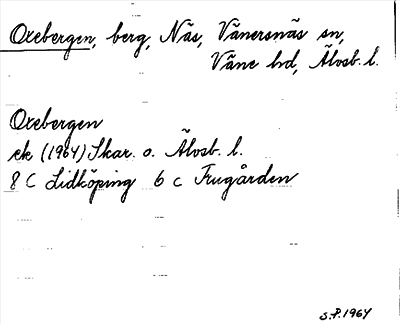 Oxebergen, berg, Näs, Vänersnäs sn,
Väne hd, Älvsb. l.
Oxebergen
ek (1964) Skar. o. Älvsb. l.
8 C Lidköping 6 c Frugården
S.P. 1964